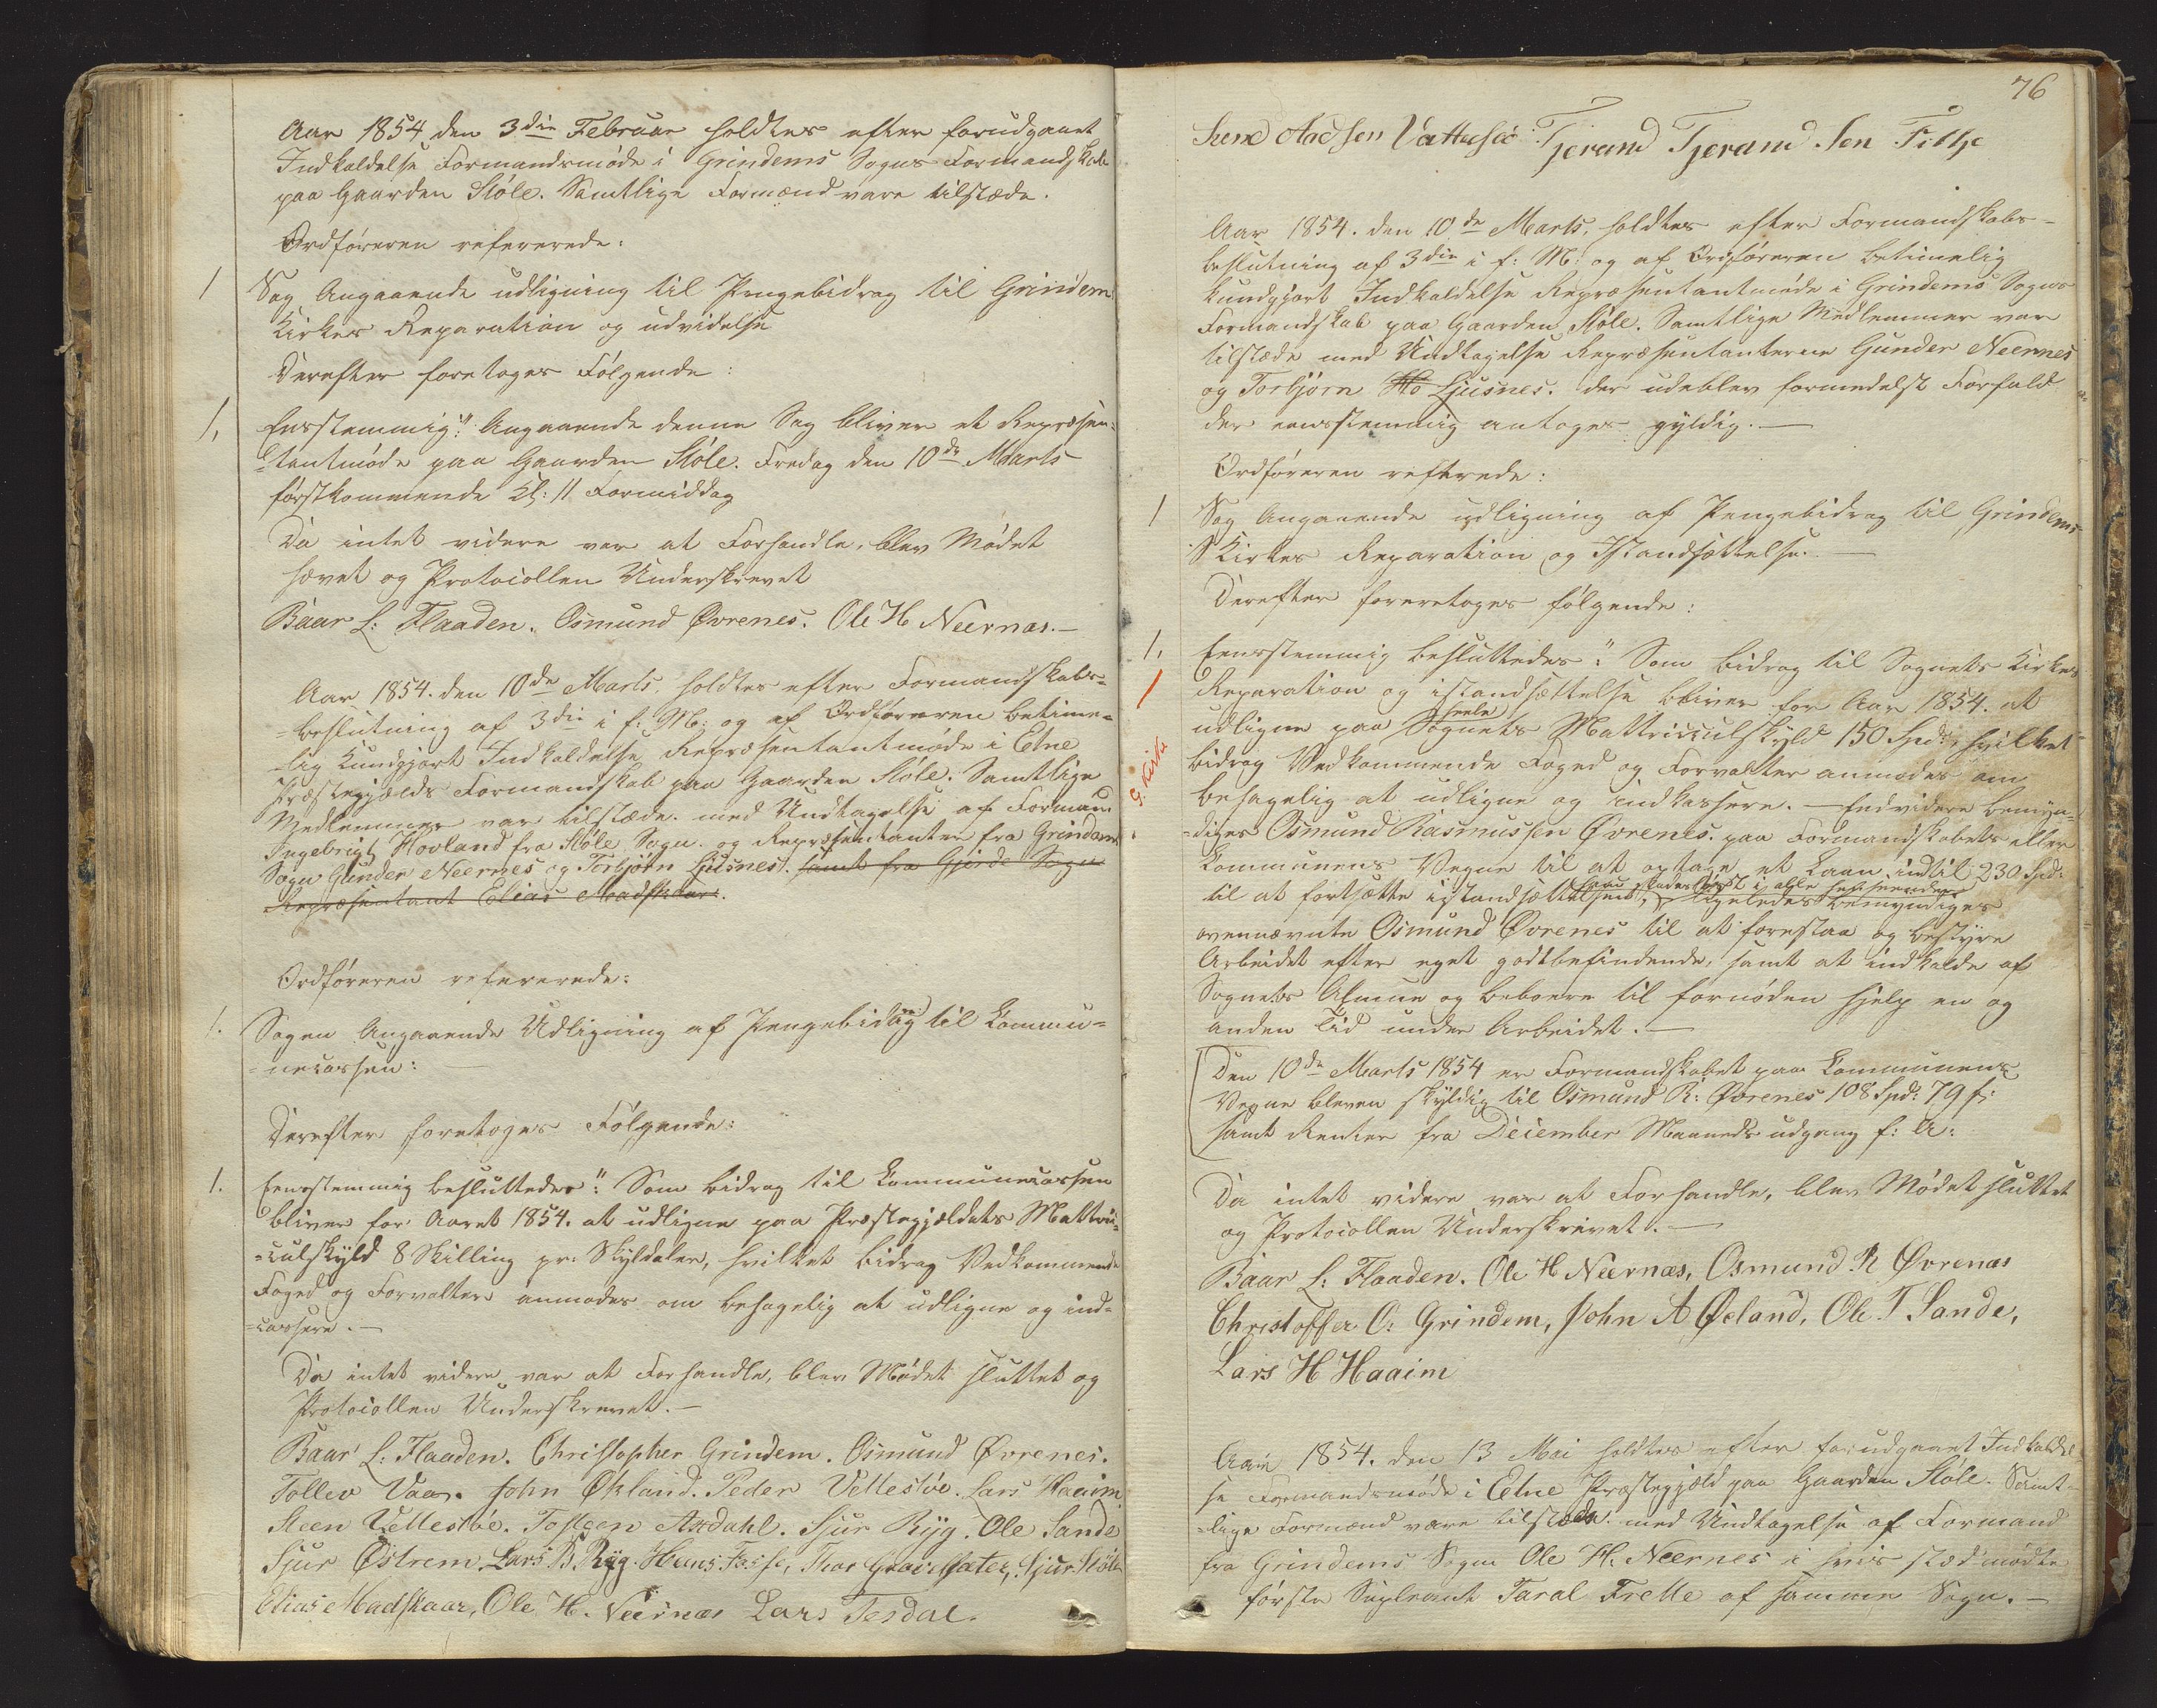 Aar 1854 den 3die Februar holdtes efter forudgaaet
Indkaldelse Formandsmöde i Grindems Sogns Formandskab
paa Gaarden Stöle. Samtlige Formænd vare tilstæde.
Ordföreren refererede:
1 Sag Angaaende udligning til Pengebidrag til Grindem
Kirkes Reparation og udvidelse
Derefter foretoges Fölgende:
1, Eenstemmig:" Angaaende denne Sag bliver et Repræsen-
=tantmöde paa Gaarden Stöle. Fredag den 10de Marts
förstkommende Kl: 11 Formiddag
Da intet videre var at Forhandle, blev Mödet
hævet og Protocollen Underskrevet
Baar L: Flaaden. Osmund Øvrenes. Ole H Neernæs.—
Aar 1854. den 10de Marts, holdtes efter Formandskabs=
=beslutning af 3die i f: M: og af Ordföreren betime=
=lig Kundgjort Indkaldelse Repræsentantmöde i Etne
Præstegjælds Formandskab paa Gaarden Stöle. Samtlige
Medlemmer var tilstæde. med Undtagelse af Formand
Ingebrigt Hovland fra Stöle Sogn. og Repræsentanter fra Grindem
Sogn Gunder Neernes og Torbjörn Ljusnes. samt fra Gjerde Sogn
Repræsentant Elias Madskaar.
Ordföreren refererede:
1. Sagen Angaaende Udligning af Pengebidrag til Commu=
=necassen:
Derefter foretoges Fölgende:
1. Eenstemmig besluttedes:" Som bidrag til Communecassen
bliver for Aaret 1854. at udligne paa Præstegjældets Mattri=
=culskyld 8 Skilling pr. Skyldaler, hvilket bidrag Vedkommende
Foged og Forvalter anmodes om behagelig at udligne og ind=
=cassere.—
Da intet videre var at Forhandle, blev Mödet sluttet og
Protocollen Underskrevet.—
Baar L: Flaaden. Christopher Grindem. Osmund Øvrenes.
Tollev Vaa. John Økland. Peder Vettestöe. Lars Haaim
Steen Vettestöe. Tosteen Axdahl. Sjur Ryg. Ole Sande
Sjur Östrem. Lars B Ryg. Hans Thor Sjur Stöle
Elias Madskaar, Ole H. Neernæs Lars Tesdal.
76
Svend Vattestöe Tjerand Tjerand Sen Fitje
Aar 1854. den 10de Marts, holdtes efter Formandskabs-
beslutning af 3die i f: M: og af Ordföreren betimelig
kundgjort Indkaldelse Repræsentantmöde i Grindems Sogns
Formandskab paa Gaarden Stöle. Samtlige Medlemmer var
tilstæde med Undtagelse Repræsentanterne Gunder Neernes
og Torbjörn Ljusnes. der udeblev formedelst Forfald
der eensstemmig antoges gyldig.—
Ordföreren refterede:
1 Sag Angaaende udligning af Pengebidrag til Grindems
Kirkes Reparation og Istandsættelse.—
Derefter foretoges fölgende:
1, Eenstemmig besluttedes:" Som bidrag til Sognets Kirkes
Reparation og istandsættelse bliver for Aar 1854. at
heele
udligne paa Sognets Mattricculskyld 150 Spd:, hvilket
G. Kirke
bidrag Vedkommende Foged og Forvalter anmodes om
behagelig at udligne og indkassere.—Endvidere bemyn=
=diges Osmund Rasmussen Øvrenes. paa Formandskabets eller
Communens Vegne til at optage et Laan indtil 230 Spd:
skadeslöst i alle
til at fortsætte istandsættelsen, ligeledes bemyndiges
ovennævnte Osmund Øvrenes til at forestaa og bestyre
Arbeidet efter eget godtbefindende, samt at indkalde af
Sognets Almue og beboere til fornöden hjelp en og
anden Tid under Arbeidet.—
Den 10de Marts 1854 er Formandskabet paa Communens
Vegne bleven skyldig til Osmund R: Øvrenes 108 Spd: 79 s:
samt Renter fra December Maaneds udgang f: A:
Da intet videre var at Forhandle, blev Mödet sluttet
og Protocollen Underskrevet.—
Baar L: Flaaden. Ole H Neernæs, Osmund R Øvrenæs
Christoffer O: Grindem, John A Øeland, Ole T Sande,
Lars H Haaim
Aar 1854. den 13 Mai holdtes efter forudgaaet Indkaldel
se Formandsmöde i Etne Præstegjæld paa Gaarden Stöle. Samt=
=lige Formænd vare tilstæde med Undtagelse af Formand
fra Grindems Sogn Ole H. Neernes i hvis sted mödte
förste Supleant Taral Frette af samme Sogn.—